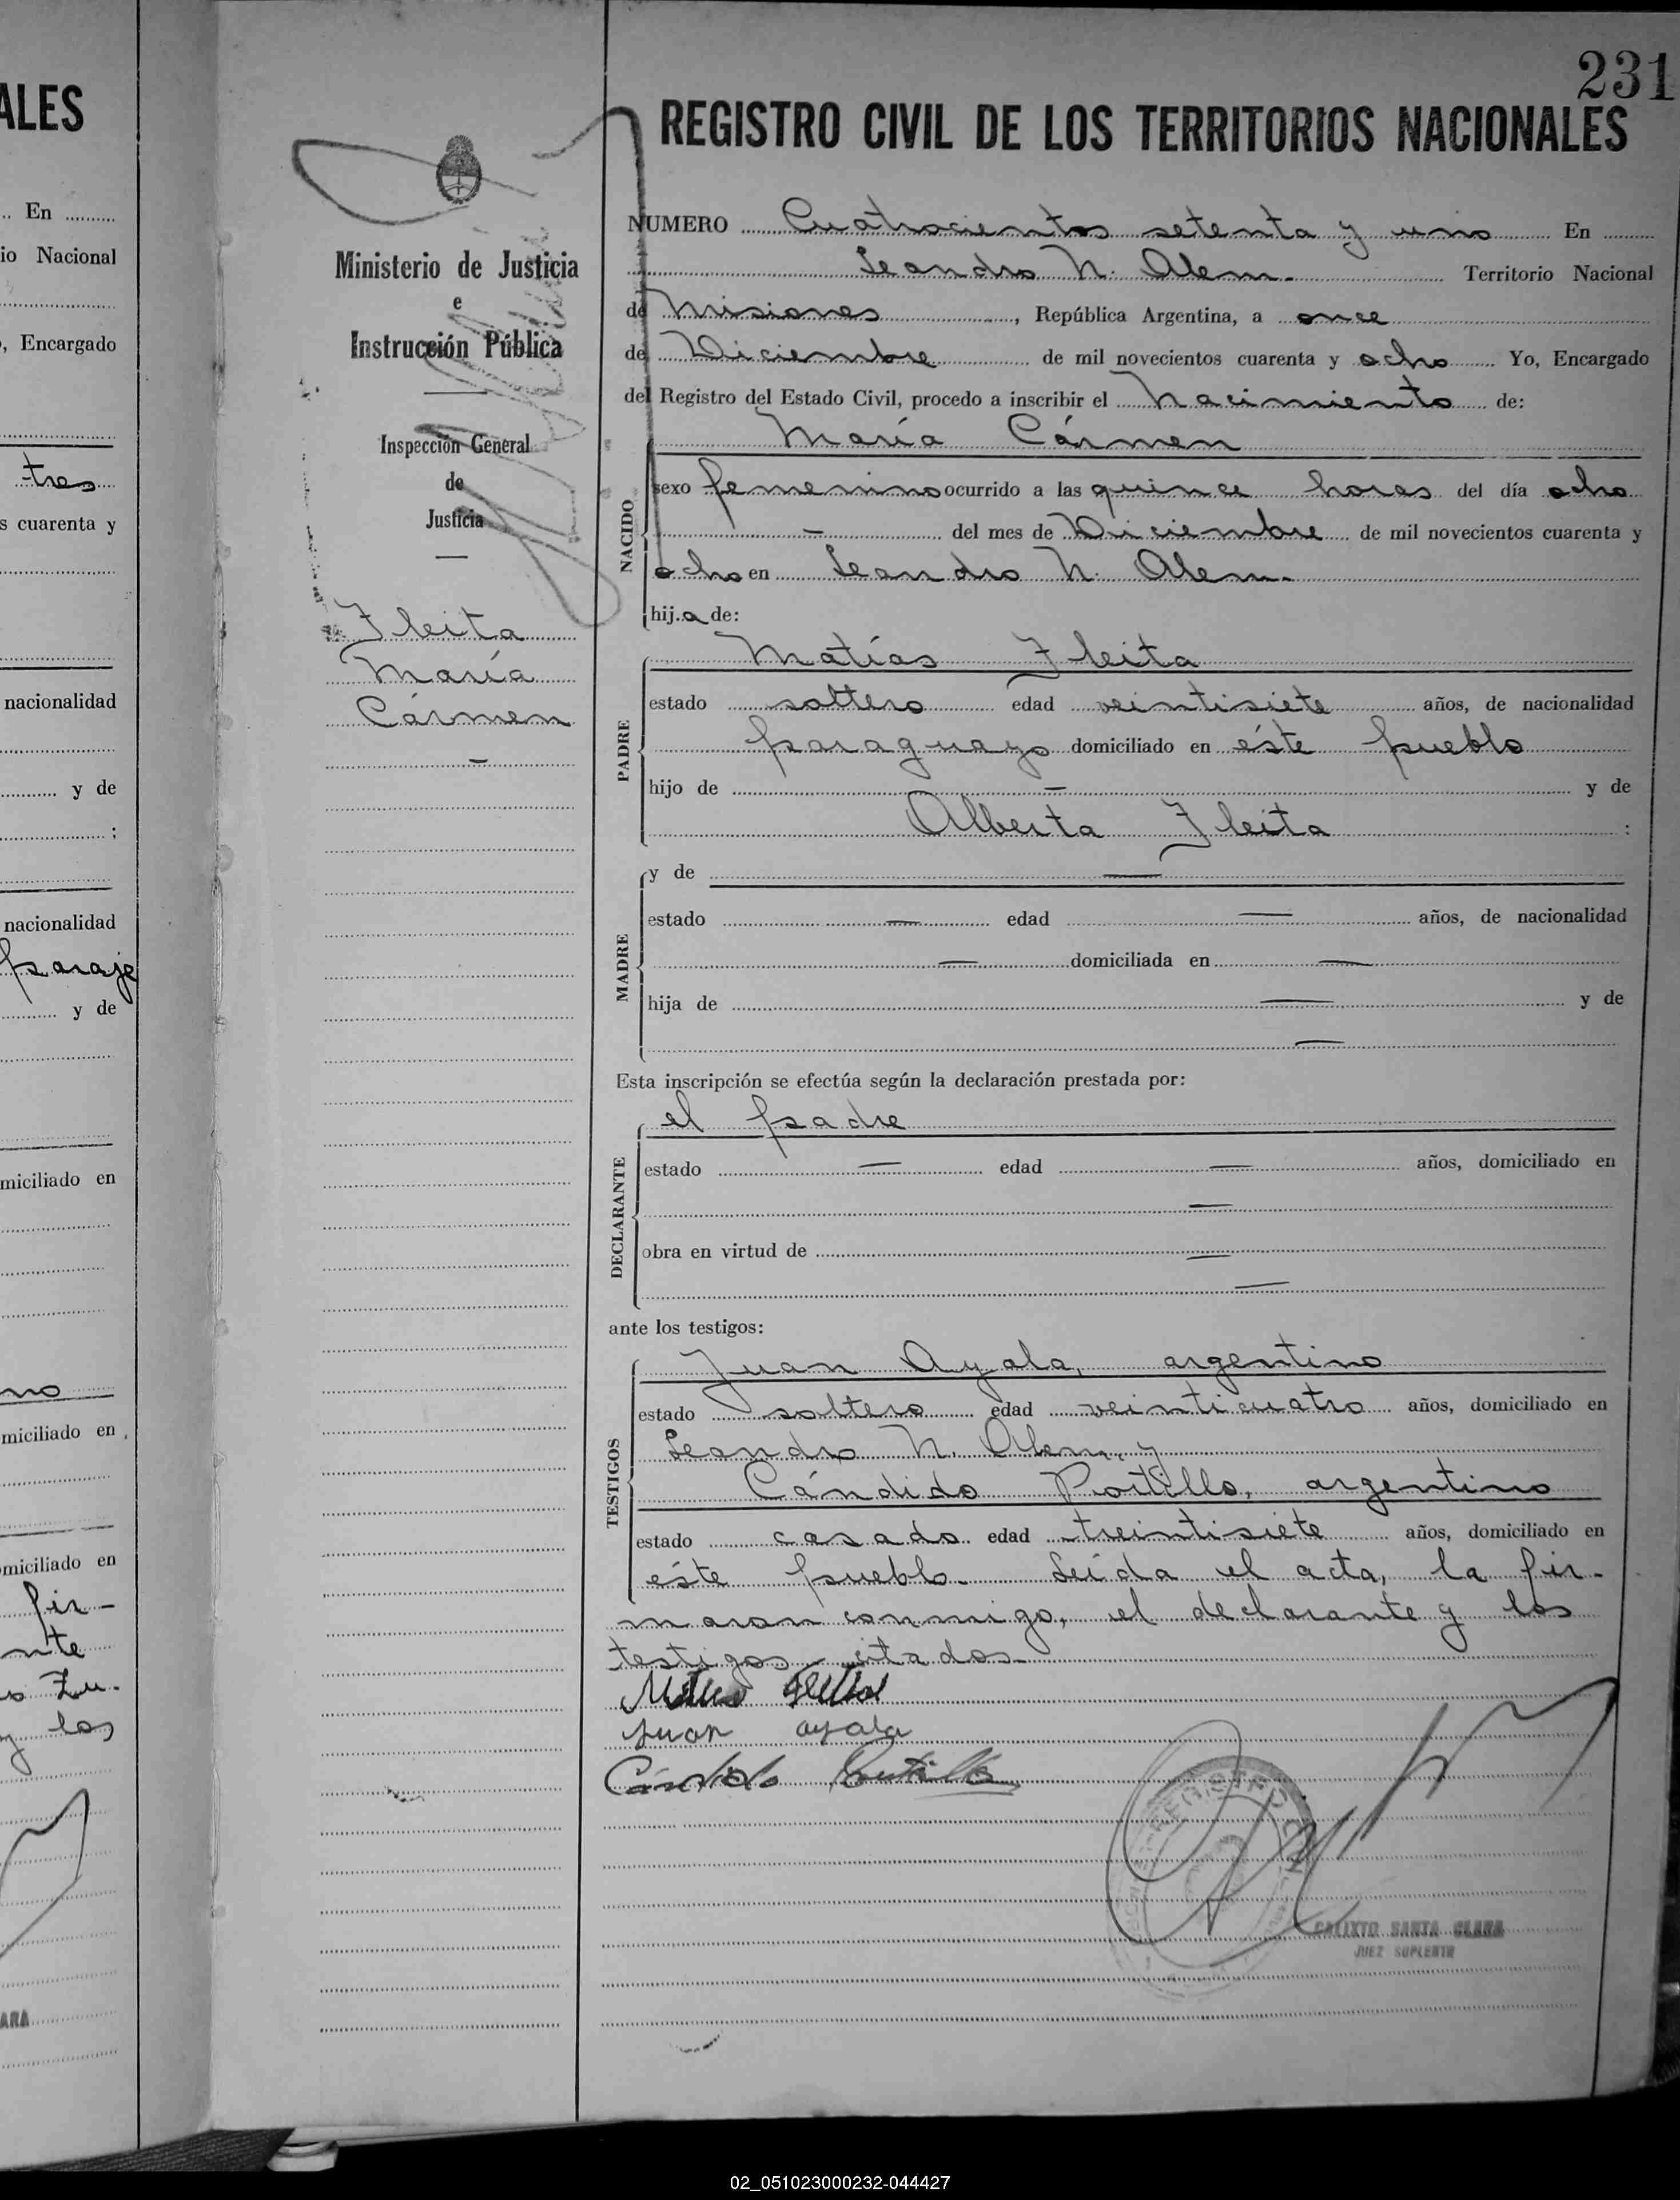 231
REGISTRO CIVIL DE LOS TERRITORIOS NACIONALES
NUMERO Cuatrocientos setenta y uno En
Leandro N. Alem. Territorio Nacional
de Misiones, República Argentina, a once
de Diciembre de mil novecientos cuarenta y ocho Yo, Encargado
del Registro del Estado Civil, procedo a inscribir el Nacimiento de:
María Cármen
NACIDO
sexo femenino ocurrido a las quince horas del día ocho
— del mes de Diciembre de mil novecientos cuarenta y
ocho en Leandro N. Alem.
hija de:
PADRE
Matías Fleita
estado soltero edad veintisiete años, de nacionalidad
paraguayo domiciliado en éste pueblo
hijo de — y de
Alberta Fleita :
MADRE
y de —
estado — edad — años, de nacionalidad
— domiciliada en —
hija de — y de
—
Esta inscripción se efectúa según la declaración prestada por:
DECLARANTE
el padre
estado — edad — años, domiciliado en
—
obra en virtud de —
—
ante los testigos:
TESTIGOS
Juan Ayala, argentino
estado soltero edad veinticuatro años, domiciliado en
Leandro N. Alem, y
Cándido Portillo, argentino
estado casado edad treintisiete años, domiciliado en
éste pueblo. Leída el acta, la fir-
maron conmigo, el declarante y los
testigos citados.
Matias Fleita
Juan ayala
Candido Portillo
CALIXTO SANTA CLARA
JUEZ SUPLENTE
Ministerio de Justicia
e
Instrucción Pública
Inspección General
de
Justicia
Fleita
María
Cármen
—
ALES
En
io Nacional
, Encargado
tres
s cuarenta y
nacionalidad
y de
;
nacionalidad
paraje
y de
miciliado en
no
miciliado en
omiciliado en
fir-
nte
o Zu-
y los
ARA
02_051023000232-044427